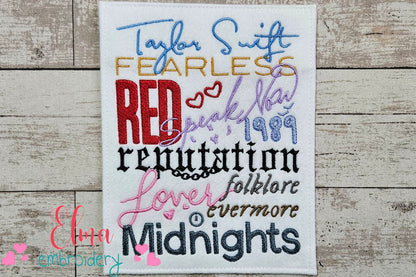 Taylor Swift
FEARLESS
RED Speak Now
1989
reputation
Lover folklore
evermore
Midnights
Elma
embroidery